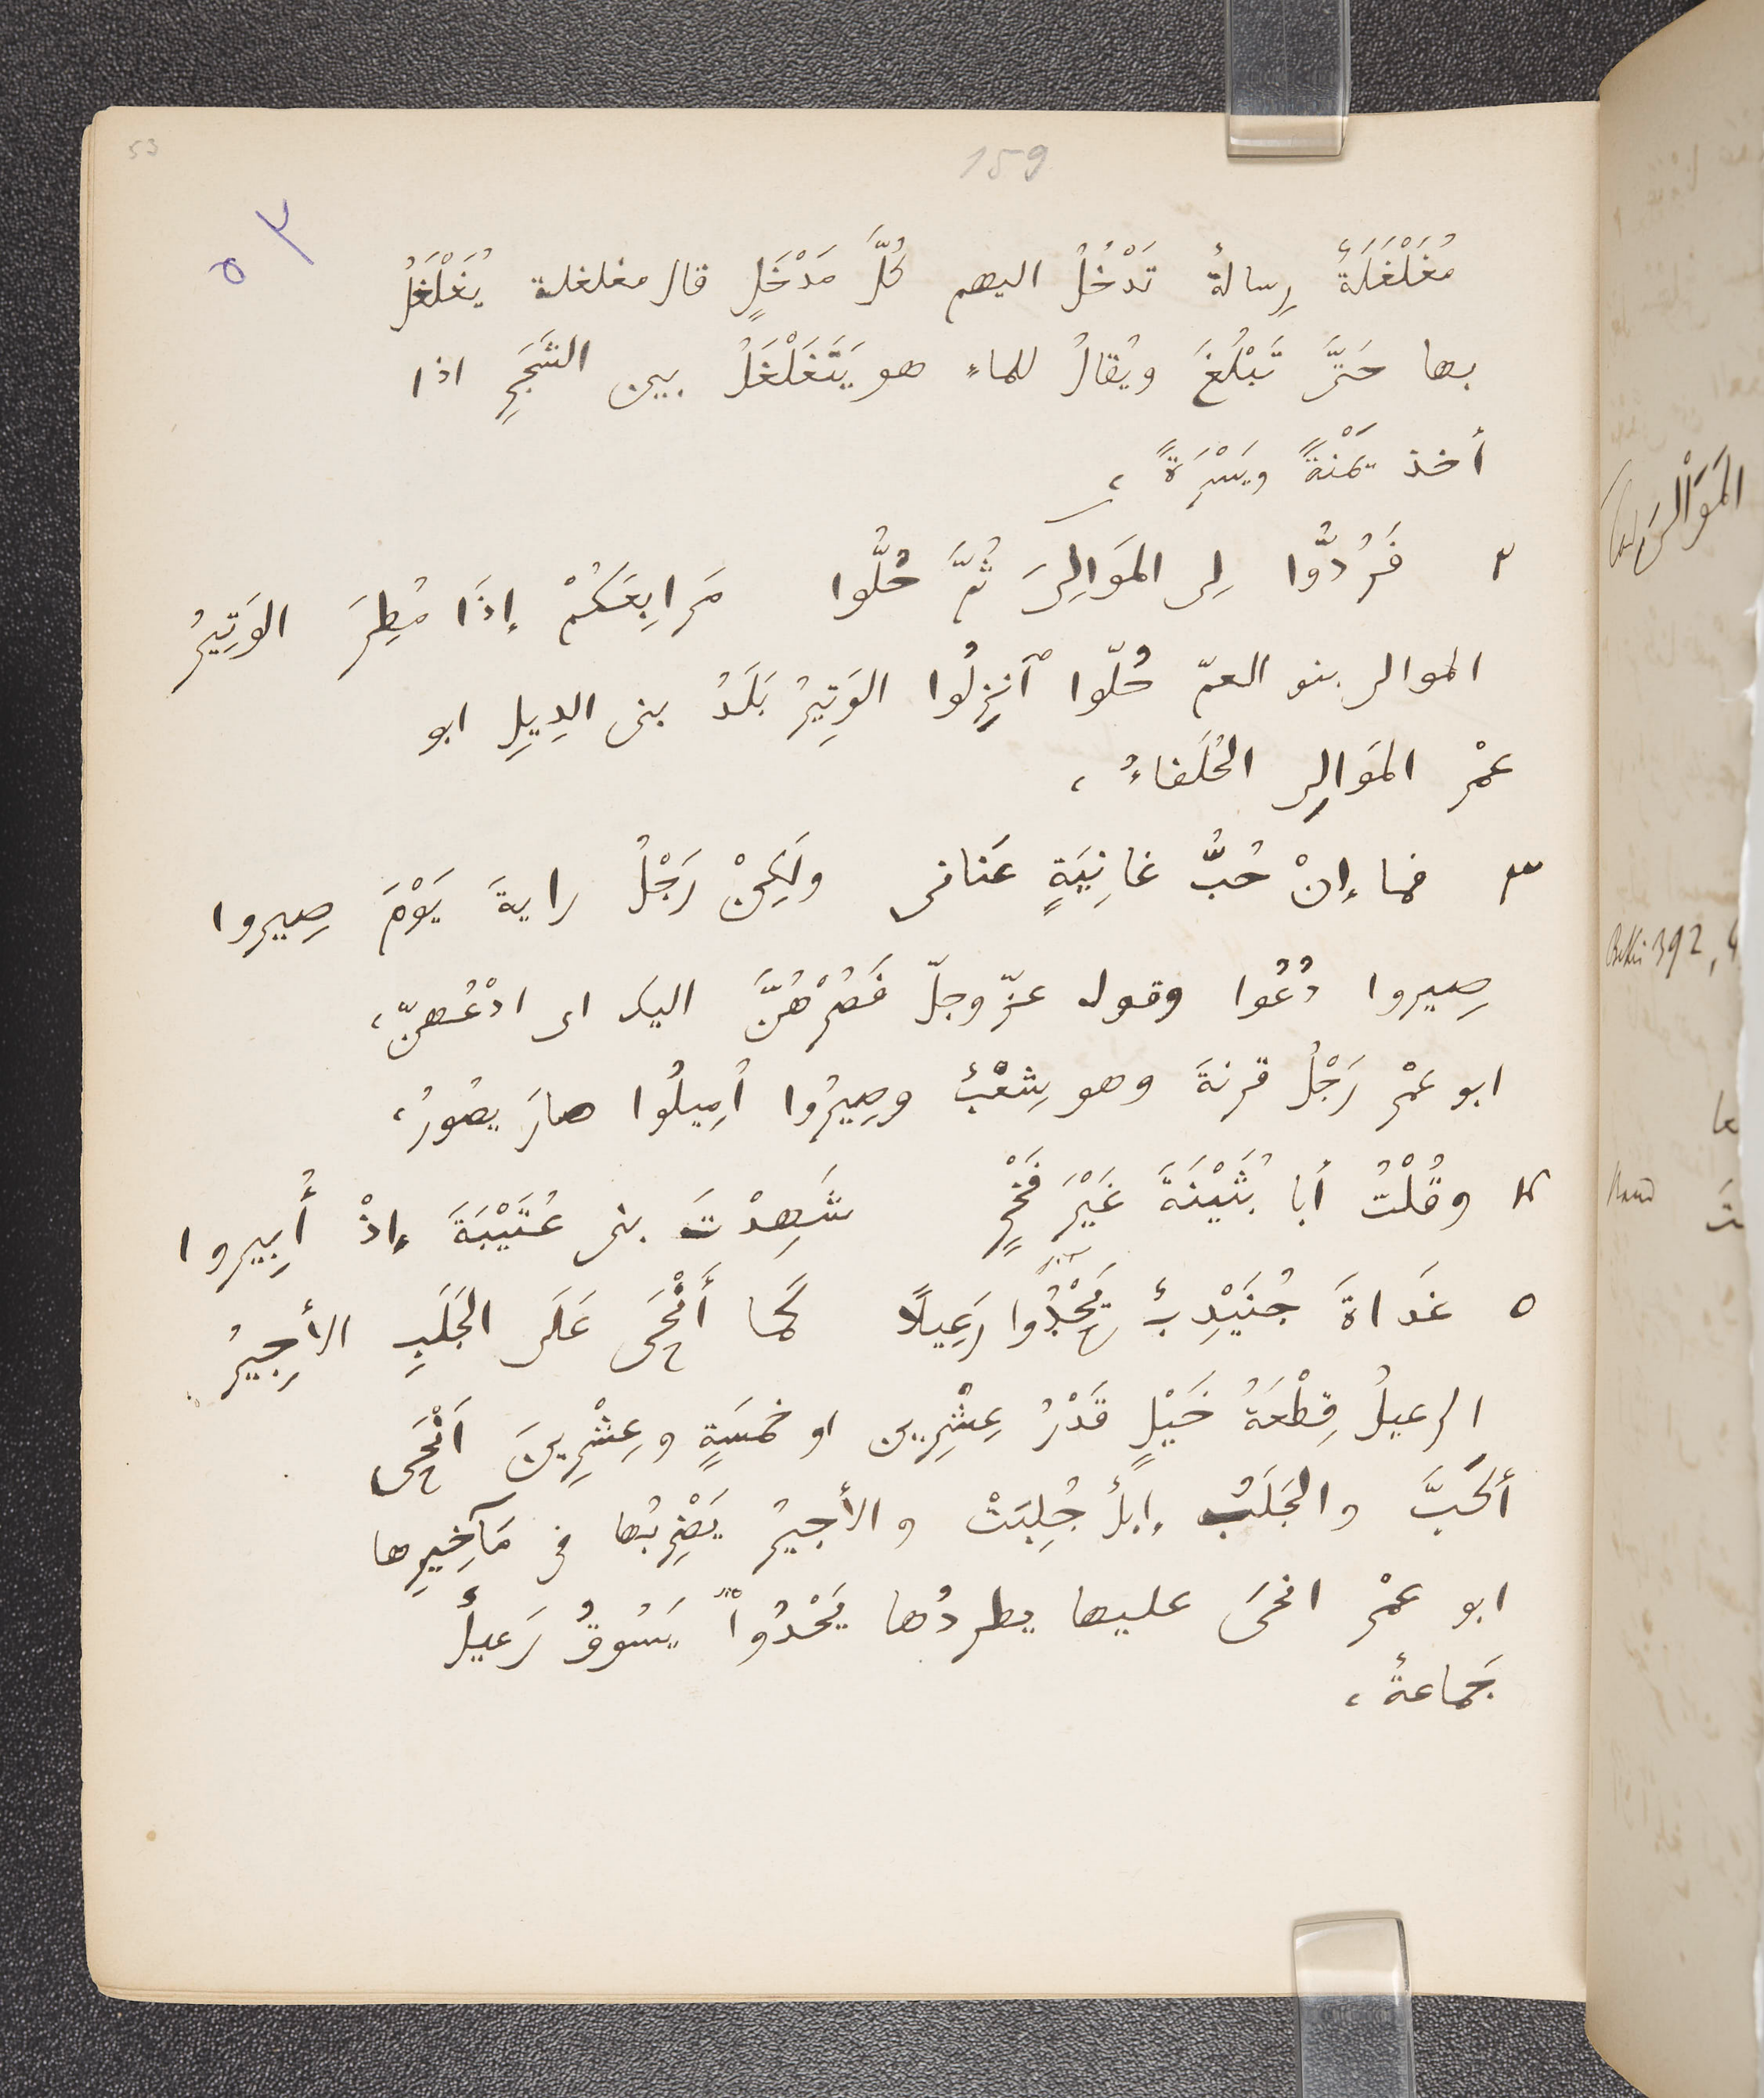 53
159
٥٣
مُغَلْغَلَةً رِسالةً تَدْخُلُ اليهم كُلَّ مَدْخَلٍ قال مغلغلة يُغَلْغَلُ
بها حَتَّى تَبْلُغَ ويُقالُ للماءِ هو يَتَغَلْغَلُ بين الشَجَرِ اذا
أخذ يَمْنَةً ويَسْرَةً ،
٢ فَرُدُّوا لى المَوَالِىَ ثُمَّ حُلُّوا مَرَابِعَكُمْ إِذَا مُطِرَ الوَتِيرُ
الموالى بنو العمّ حُلّوا ٱنْزِلُوا الوَتِيرُ بَلَدُ بنى الدِيلِ ابو
عمْر المَوَالِى الحُلَفاءُ ،
٣ فما إِنْ حُبُّ غانِيَةٍ عَنانى ولَكِنْ رَجْلُ رايةَ يَوْمَ صِيروا
صِيروا دُعُوا وقوله عزّ وجلّ فَصُرْهُنَّ اليك اى ادْعُهنّ ،
ابو عمْر رَجْلُ قرنةَ وهو شِعْبٌ وصِيرُوا أُمِيلُوا صارَ يصُورُ ،
٤ وقُلْتُ أبا بُثَيْنَةَ غَيْرَ فَخْرٍ شَهِدْتَ بنى عُتَيْبَةَ إِذْ أُبِيروا
٥ غَداةَ جُنَيْدِبٌ يَحْدُوا رَعِيلًا كَما أَنْحَى عَلَى الجَلَبِ الأَجِيرُ
الرعيلُ قِطْعَةُ خَيْلٍ قَدْرُ عِشْرِين او خمسَةٍ وعِشْرِينَ اَنْحَى
أكَبَّ والجَلَبُ إبلٌ جُلِبَتْ والأجيرُ يَضْرِبُها فى مَآخِيرِها
ابو عمْر انحَى عليها يطردُها يَحْدُوا يَسُوقُ رَعيلٌ
جَماعةٌ ،
Bekri 392,